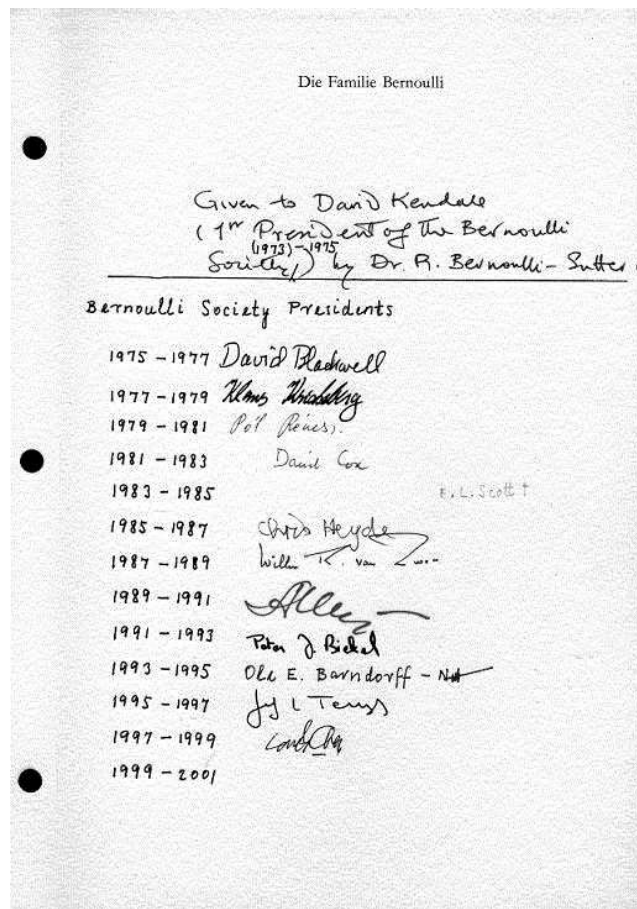 Die Familie Bernoulli
Given to David Kendall
(1st President of the Bernoulli
(1973)-1975
Society) by Dr. R. Bernoulli-Sutter
Bernoulli Society Presidents
1975-1977 David Blackwell
1977-1979 Klaus
1979-1981 Pál
1981-1983 David Cox
1983-1985 E.L. Scott †
1985-1987 Chris Heyde
1987-1989 Willem R. van
1989-1991
1991-1993 Peter J. Bickel
1993-1995 Ole E. Barndorff-
1995-1997
1997-1999 Louis
1999-2001